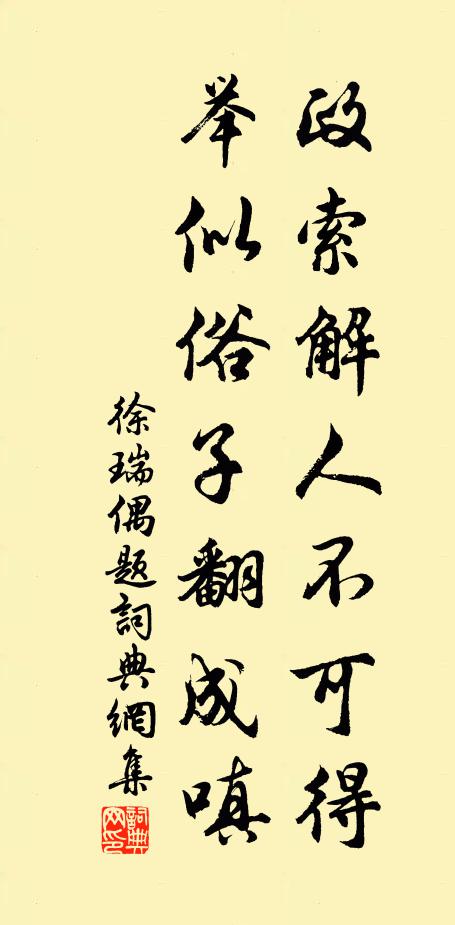 政索解人不可得
举似俗子翻成嗔
徐瑞偶题詞典網集
詞典
网印